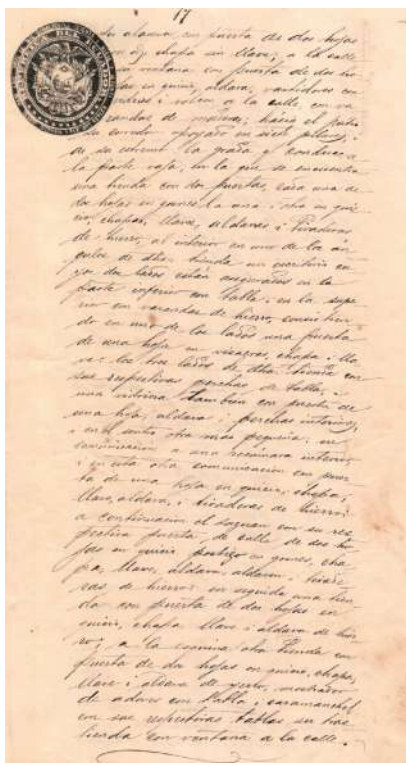 17
REPUBLICA DEL ECUADOR
alcoba con puerta de dos hojas
chapa sin llave; a la calle
ventana con puerta de dos ho
jas en quicio, aldava,
i salen a la calle con va
randas de madera; hacia el patio
su corredor apoyado en siete pilares, i
de su estremo la grada q conduce a
la parte baja, en la que se encuentra
una tienda con dos puertas, cada una de
dos hojas en gonces la una i otra en qui
cio, chapas, llaves, aldavas i tiraderas
de hierro, al interior en uno de los án
gulos de dha tienda un escritorio cu
yos dos lados están asegurados en la
parte inferior con tabla i en la supe
rior con varandas de hierro, consistien
do en uno de los lados una puerta
de una hoja en visagras, chapa i lla
ve: los tres lados de dha tienda con
sus respectivas perchas de tabla, i
una vidriera tambien con puerta de
una hoja, aldava i perchas interiores,
i en el centro otra mas pequeña: en
comunicacion a una recámara interior,
i en esta otra comunicacion con puer
ta de una hoja en quicio, chapa,
llave, aldava, i tiraderas de hierro:
a continuacion el zaguan con su res
pectiva puerta de calle de dos ho
jas en quicio postigo en gonces, cha
pa, llave, aldava, aldavon i tirade
ras de hierro: en seguida una tien
da con puerta de dos hojas en
quicio, chapa llave i aldava de hie
rro; a la esquina otra tienda con
puerta de dos hojas en quicio, chapa,
llave i aldava de hierro, mostrador
de adoves con tabla i
con sus respectivas tablas su tras
tienda con ventana a la calle.